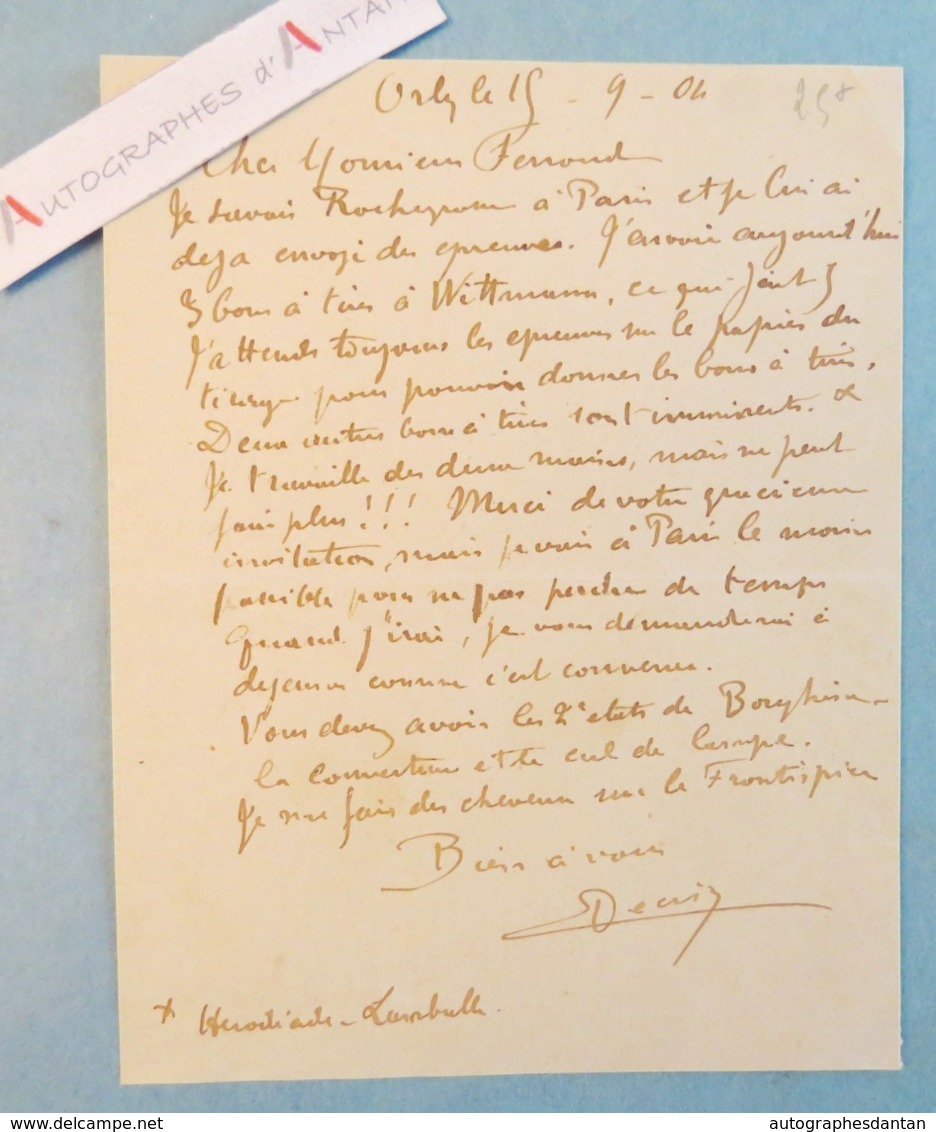 AUTOGRAPHES d'ANTAN
Orly le 15 - 9 - 04
25 +
Cher Monsieur Ferroud
Je savais Rochegrosse à Paris et je lui ai
deja envoyé des epreuves. J'envoie aujourd'hui
3 bons à tirer à Wittmann, ce qui fait 5
J'attends toujours les epreuves sur le papier du
tirage pour pouvoir donner les bons à tirer.
Deux autres bons à tirer sont imminents. +
Je travaille des deux mains, mais ne peut
faire plus!!! Merci de votre gracieuse
invitation, mais je vais à Paris le moins
possible pour ne pas perdre de temps
Quand j'irai, je vous demanderai à
dejeuner comme c'est convenu.
Vous devez avoir les 2e etats de Borghese -
la couverture et le cul de lampe.
Je me fais des cheveux sur le Frontispice
Bien à vous
Decisy
+ Herodiade - Lamballe
delcampe.net
autographesdantan